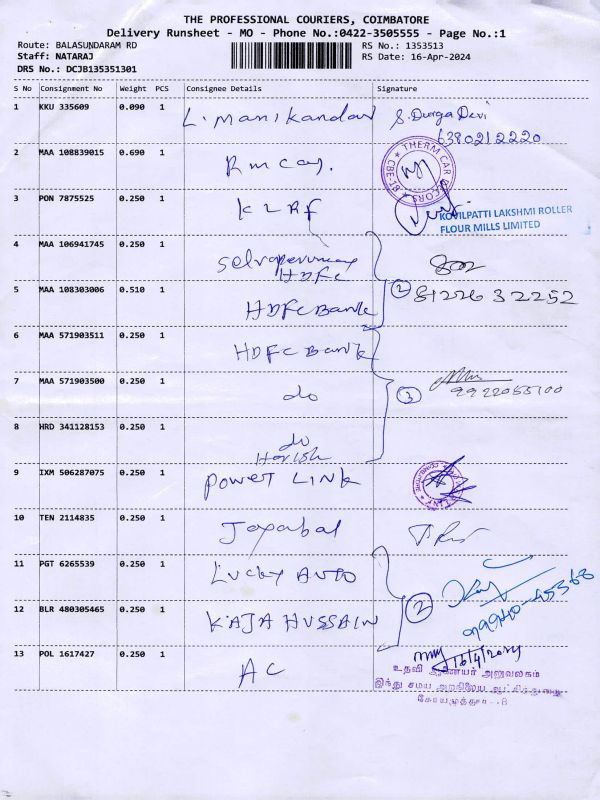 THE PROFESSIONAL COURIERS, COIMBATORE
Delivery Runsheet - MO - Phone No.:0422-3505555 - Page No.:1
Route: BALASUNDARAM RD
Staff: NATARAJ
DRS No.: DCJB135351301
RS No.: 1353513
RS Date: 16-Apr-2024
S No Consignment No Weight PCS Consignee Details Signature
1 KKU 335609 0.090 1 L. Manikandan S. Durga Devi
6380212220
2 MAA 108839015 0.690 1
THERM CAR DECORS CBE-18
3 PON 7875525 0.250 1 KLRF
KOVILPATTI LAKSHMI ROLLER
FLOUR MILLS LIMITED
4 MAA 106941745 0.250 1
HDFC
5 MAA 108303006 0.510 1 HDFC Bank 2 81226 32252
6 MAA 571903511 0.250 1 HDFC Bank
7 MAA 571903500 0.250 1 do 3
8 HRD 341128153 0.250 1 do
Harish
9 IXM 506287075 0.250 1 Power LINK
10 TEN 2114835 0.250 1
11 PGT 6265539 0.250 1 Lucky AUTO
12 BLR 480305465 0.250 1 KAJA HUSSAIN 2 99940-45368
13 POL 1617427 0.250 1 AC
16/4/2024
உதவி ஆணையர் அலுவலகம்
இந்து சமய அறநிலைய ஆட்சித்துறை